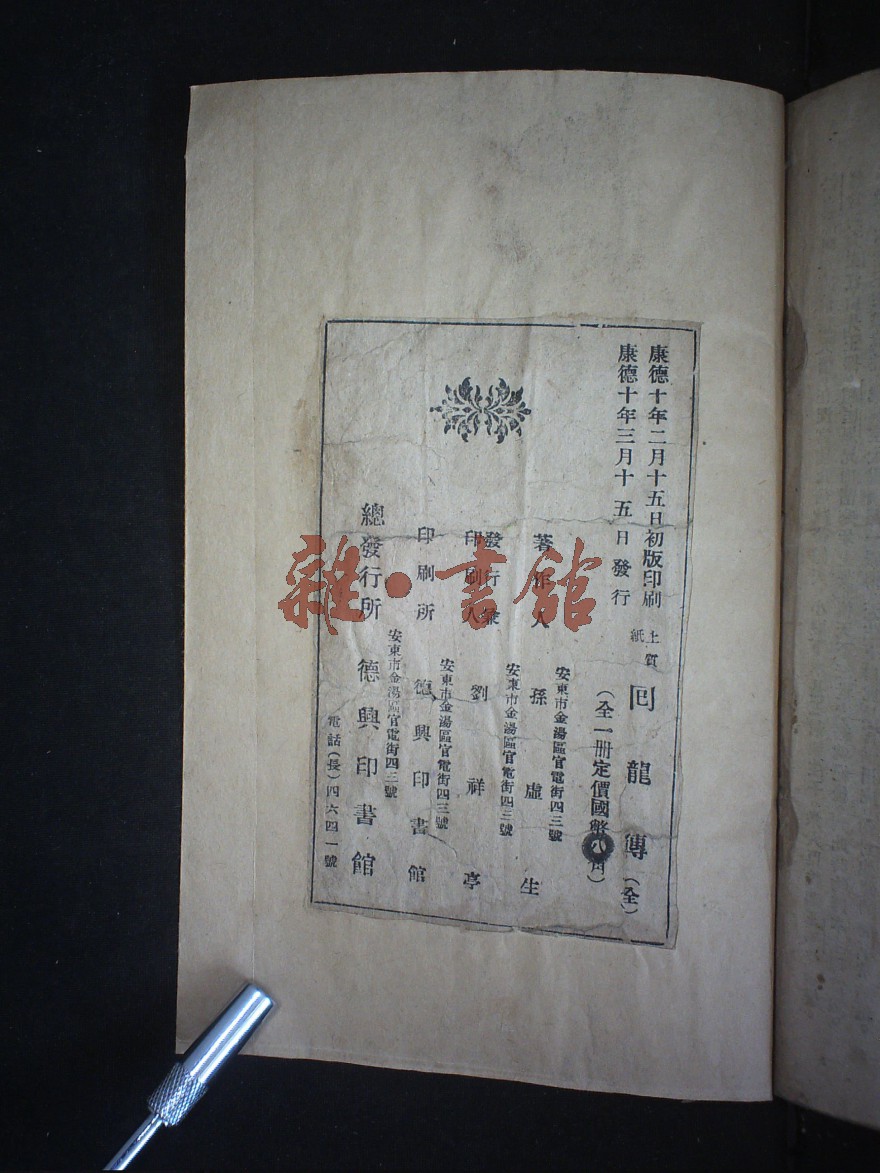 康德十年二月十五日初版印刷
康德十年三月十五日發行
上質紙
囘龍傳（全）
（全一冊定價國幣八角）
安東市金湯區官電街四三號
著作人 孫虛生
安東市金湯區官電街四三號
發行兼
印刷人 劉祥亭
安東市金湯區官電街四三號
印刷所 德興印書館
安東市金湯區官電街四三號
總發行所 德興印書館
電話（長）四六四一號
雜·書館